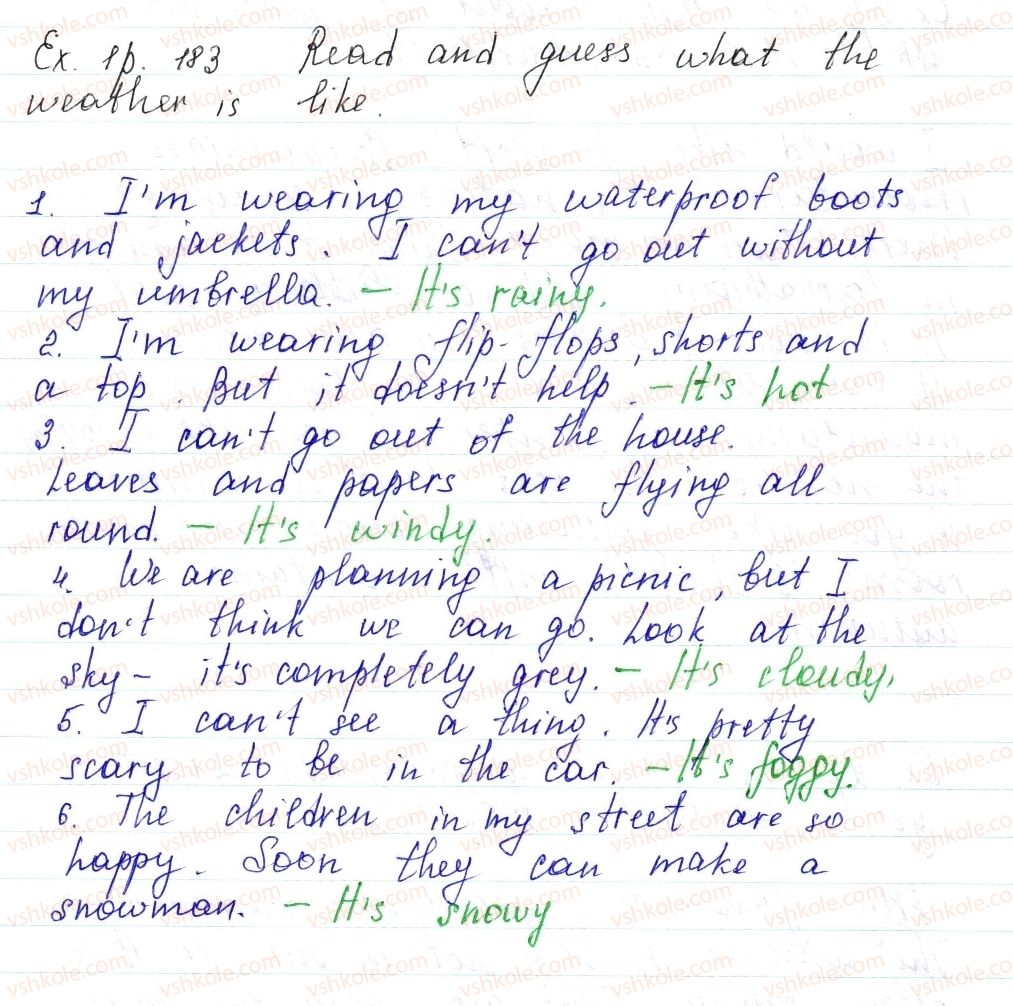 Ex. 1p. 183 Read and guess what the
weather is like.
1. I'm wearing my waterproof boots
and jackets. I can't go out without
my umbrella. – It's rainy.
2. I'm wearing flip-flops, shorts and
a top. But it doesn't help. – It's hot
3. I can't go out of the house.
Leaves and papers are flying all
round. – It's windy.
4. We are planning a picnic, but I
don't think we can go. Look at the
sky – it's completely grey. – It's cloudy.
5. I can't see a thing. It's pretty
scary to be in the car. – It's foggy.
6. The children in my street are so
happy. Soon they can make a
snowman. – It's snowy
vshkole.com